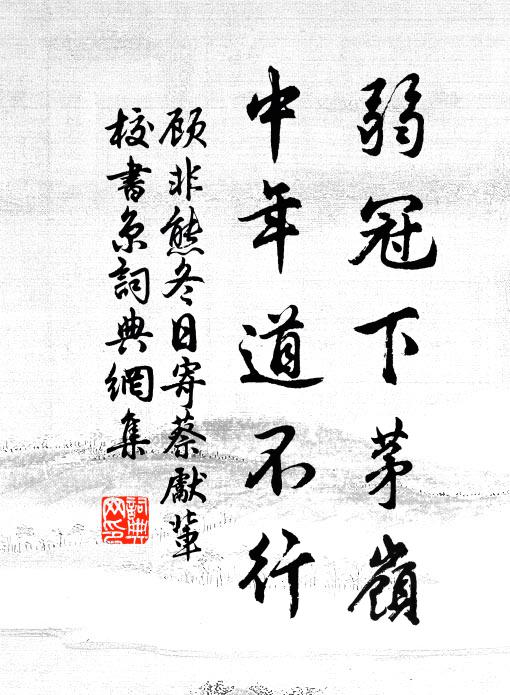 弱冠下茅嶺
中年道不行
顾非熊冬日寄蔡獻輩
校書京詞典網集
詞典網印